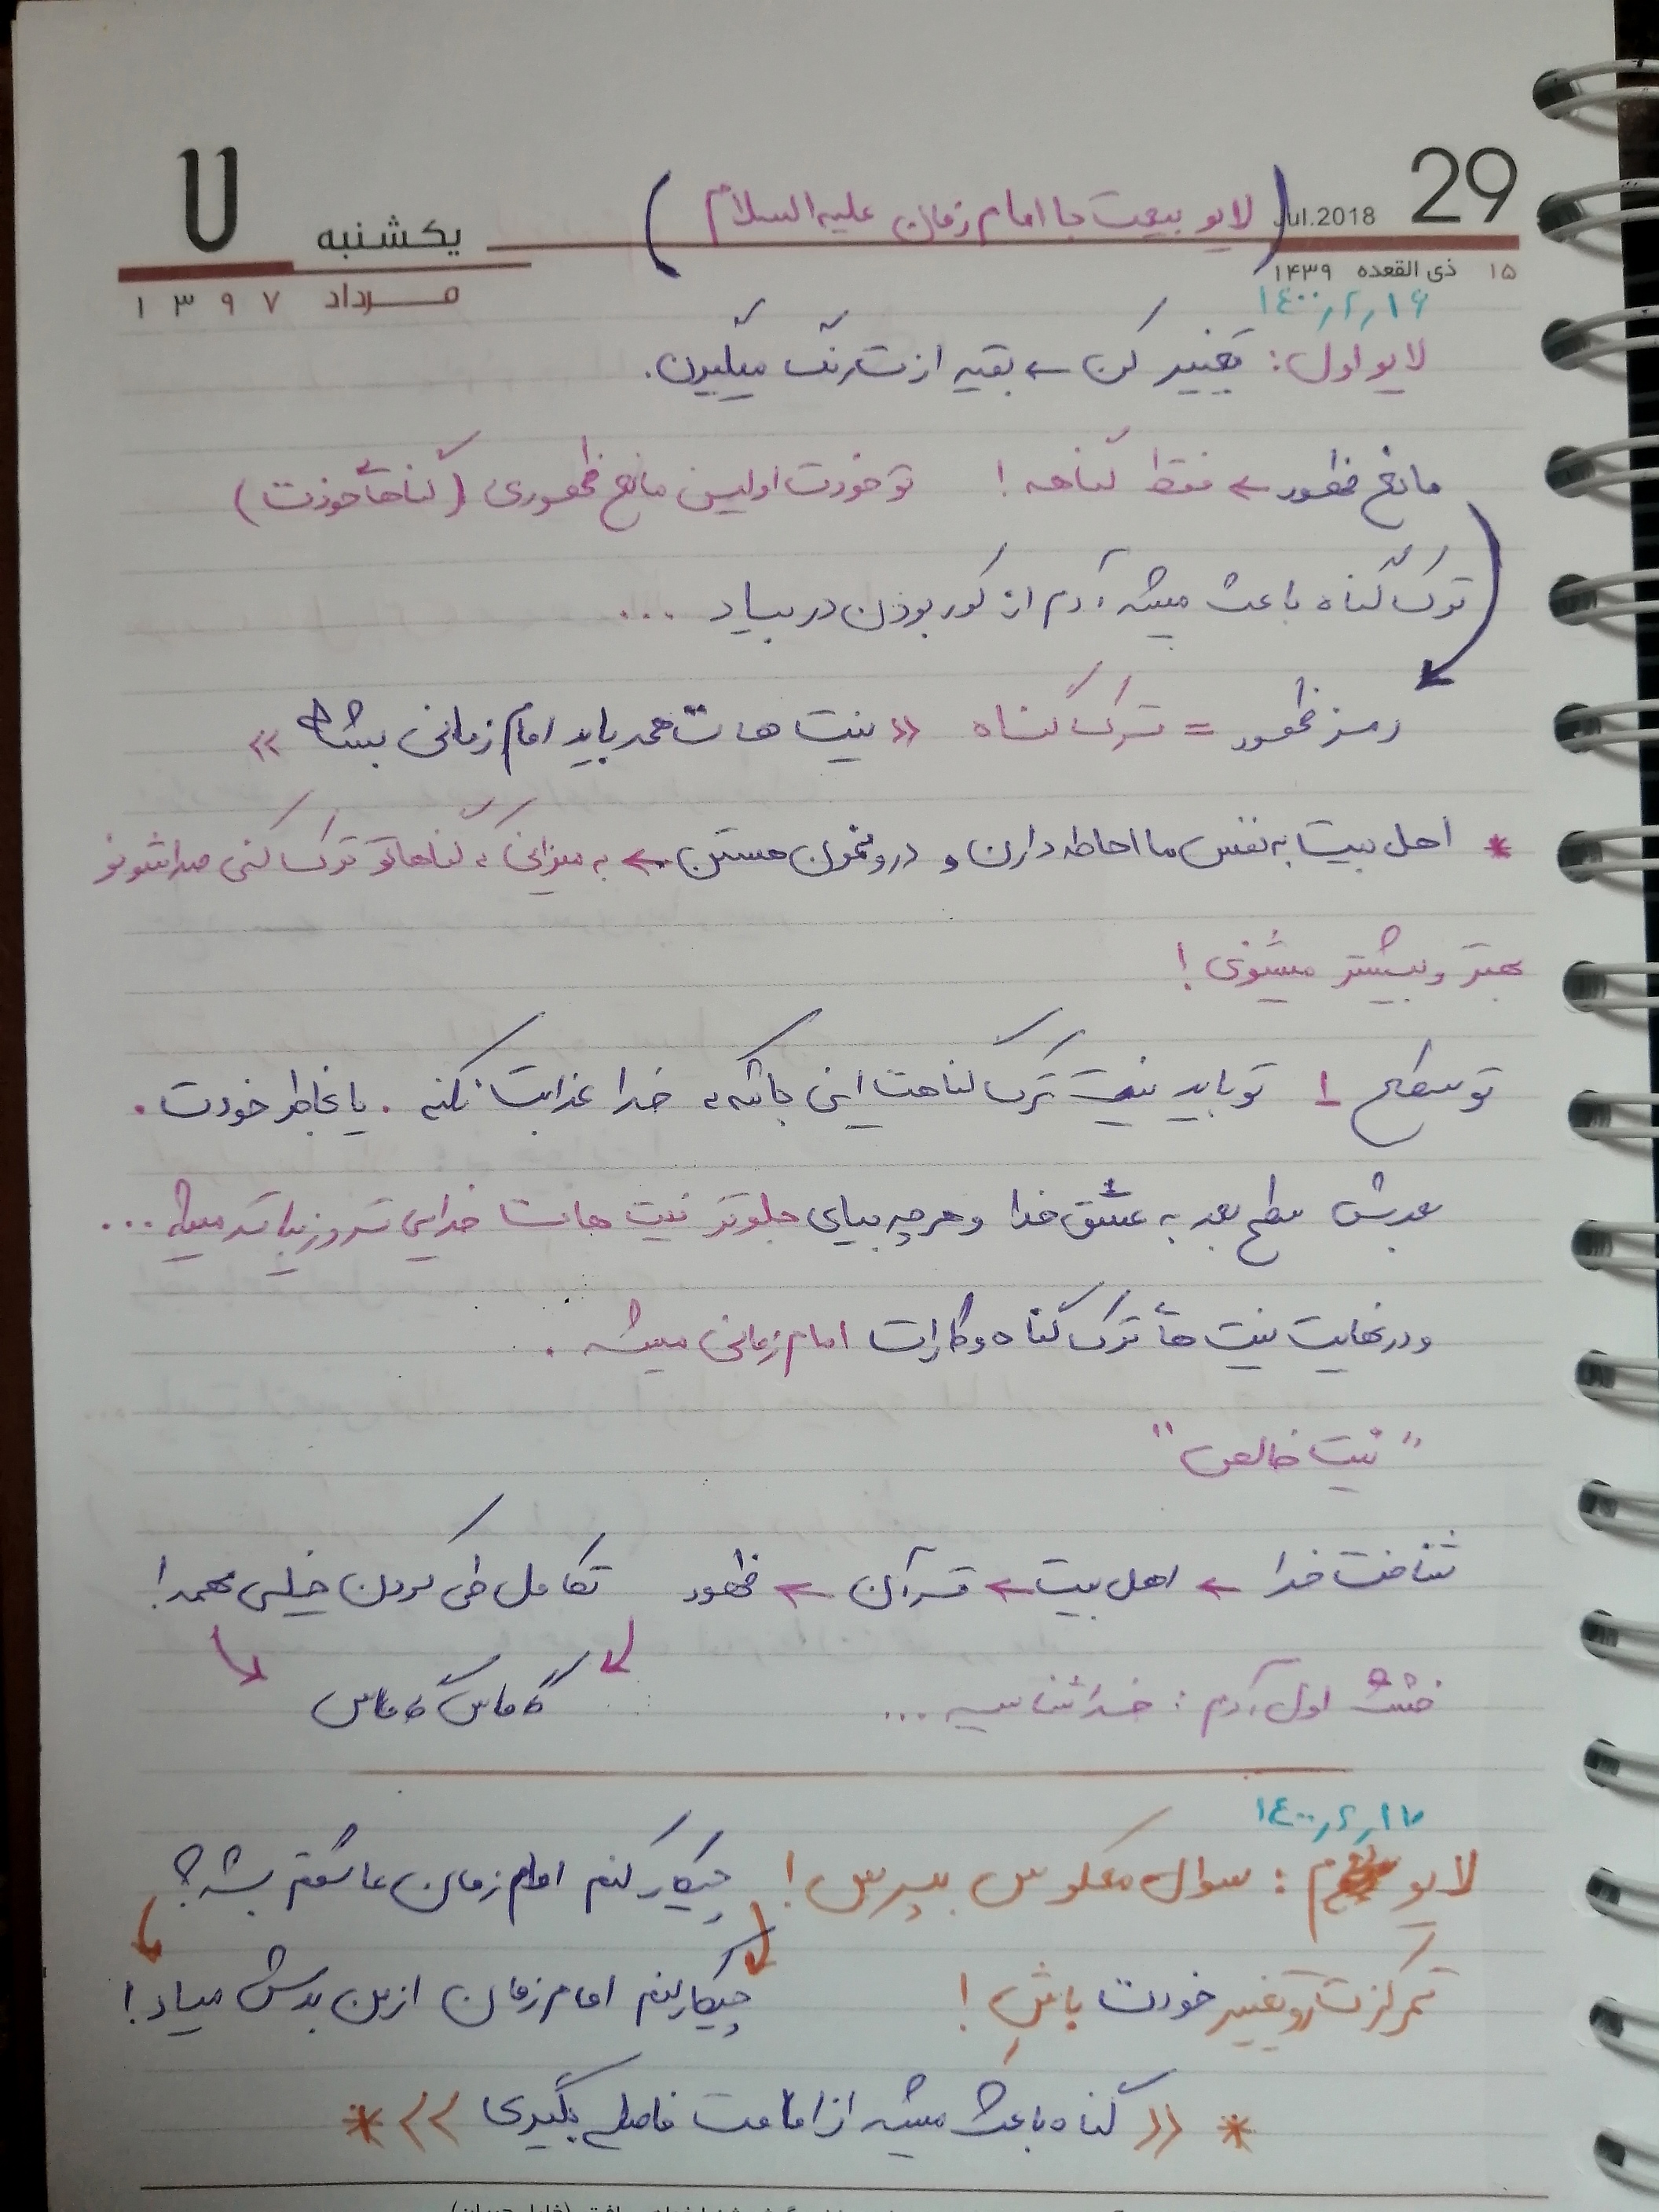 29 Jul.2018 (لایو بیعت با امام زمان علیه السلام) یکشنبه ۷
۱۵ ذی القعده ۱۴۳۹ مرداد ۱۳۹۷
۱۴۰۰٫۲٫۱۶
لایو اول: تغییر کن ← بقیه ازت رنگ میگیرن.
مانع ظهور ← فقط گناهه! تو خودت اولین مانع ظهوری (گناهای خودت)
ترک گناه باعث میشه آدم از کور بودن دربیاد ...
رمز ظهور = ترک گناه «نیت هات همه باید امام زمانی بشه»
* اهل بیت به نفس ما احاطه دارن و درونمون هستن ← به میزانی که گناهاتو ترک کنی صداشونو
بهتر و بیشتر میشنوی!
تو سطح 1 تو باید نیت ترک گناهت این باشه که خدا عذابت نکنه. یا بخاطر خودت.
بعدش سطح بعد به عشق خدا و هرچه بیای جلوتر نیت هات خدایی تر و زیباتر میشه ...
و در نهایت نیت های ترک گناه و کارات امام زمانی میشه.
"نیت خالص"
شناخت خدا ← اهل بیت ← قرآن ← ظهور تکامل طی کردن خیلی مهمه!
خشت اول آدم: خداشناسیه ... گام به گام
۱۴۰۰٫۲٫۱۷
لایو : سوال معکوس بپرس! چیکار کنم امام زمان عاشقم بشه؟
تمرکزت رو تغییر خودت باش! چیکار کنم امام زمان ازمن بدش میاد!
* «گناه باعث میشه از امامت فاصله بگیری» *